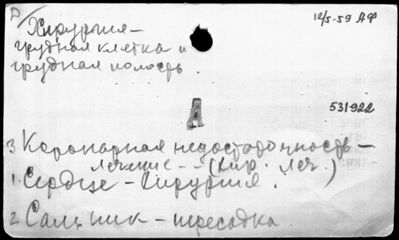 Д
Хирургия-
грудная клетка и
грудная полость.
12/5-59 АФ
А
531922
3 Коронарная недостаточность -
лечение -- (хир. леч.)
1. Сердце - Хирургия.
2. Сальник - пересадка.